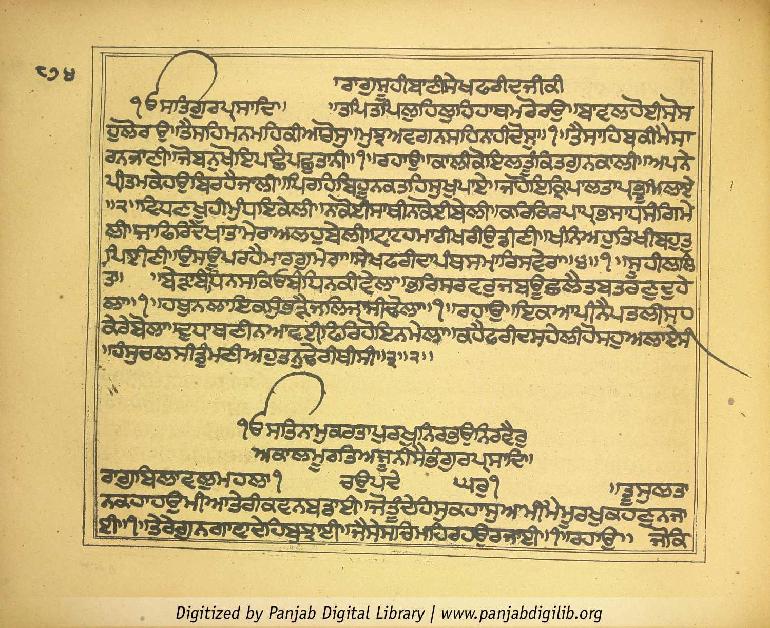 ੮੭੪
ਰਾਗੁਸੂਹੀਬਾਣੀਸੇਖਫਰੀਦਜੀਕੀ
ੴਸਤਿਗੁਰਪ੍ਰਸਾਦਿ॥ ॥ਤਪਿਤਪਿਲੁਹਿਲੁਹਿਹਾਥਮਰੋਰਉ॥ਬਾਵਲਿਹੋਈਸੋਸ
ਹੁਲੋਰਉ॥ਤੈਸਹਿਮਨਮਹਿਕੀਆਰੋਸੁ॥ਮੁਝੁਅਵਗਨਸਹਿਨਾਹੀਦੋਸੁ॥੧॥ਤੈਸਾਹਿਬਕੀਮੈਸਾ
ਰਨਜਾਨੀ॥ਜੋਬਨੁਖੋਇਪਾਛੈਪਛੁਤਾਨੀ॥੧॥ਰਹਾਉ॥ਕਾਲੀਕੋਇਲਤੂਕਿਤਗੁਨਕਾਲੀ॥ਅਪਨੇ
ਪ੍ਰੀਤਮਕੇਹਉਬਿਰਹੈਜਾਲੀ॥ਪਿਰਹਿਬਿਹੂਨਕਤਹਿਸੁਖੁਪਾਏ॥ਜਾਹੋਇਕ੍ਰਿਪਾਲਤਾਪ੍ਰਭੂਮਿਲਾਏ
॥੨॥ਵਿਧਣਖੂਹੀਮੁੰਧਇਕੇਲੀ॥ਨਾਕੋਈਸਾਥੀਨਾਕੋਈਬੇਲੀ॥ਕਰਿਕਿਰਪਾਪ੍ਰਭਿਸਾਧਸੰਗਿਮੇ
ਲੀ॥ਜਾਫਿਰਿਦੇਖਾਤਾਮੇਰਾਅਲਹੁਬੇਲੀ॥ਵਾਟਹਮਾਰੀਖਰੀਉਡੀਣੀ॥ਖੰਨਿਅਹੁਤਿਖੀਬਹੁਤੁ
ਪਿਈਣੀ॥ਉਸੁਊਪਰਿਹੈਮਾਰਗੁਮੇਰਾ॥ਸੇਖਫਰੀਦਾਪੰਥੁਸਮਾਰਿਸਵੇਰਾ॥੪॥੧॥ਸੂਹੀਲਲਿ
ਤ॥ ॥ਬੇੜਾਬੰਧਿਨਸਕਿਓਬੰਧਨਕੀਵੇਲਾ॥ਭਰਿਸਰਵਰੁਜਬਊਛਲੈਤਬਤਰਣੁਦੁਹੇ
ਲਾ॥੧॥ਹਥੁਨਲਾਇਕਸੁੰਭੜੈਜਲਿਜਾਸੀਢੋਲਾ॥੧॥ਰਹਾਉ॥ਇਕਆਪੀਨੈਪਤਲੀਸਹ
ਕੇਰੇਬੋਲਾ॥ਦੁਧਾਥਣੀਨਆਵਈਫਿਰਿਹੋਇਨਮੇਲਾ॥ਕਹੈਫਰੀਦੁਸਹੇਲੀਹੋਸਹੁਅਲਾਏਸੀ
॥ਹੰਸੁਚਲਸੀਡੁੰਮਣਾਅਹਿਤਨੁਢੇਰੀਥੀਸੀ॥੩॥੨॥
ੴਸਤਿਨਾਮੁਕਰਤਾਪੁਰਖੁਨਿਰਭਉਨਿਰਵੈਰੁ
ਅਕਾਲਮੂਰਤਿਅਜੂਨੀਸੈਭੰਗੁਰਪ੍ਰਸਾਦਿ॥
ਰਾਗੁਬਿਲਾਵਲੁਮਹਲਾ੧ ਚਉਪਦੇ ਘਰੁ੧ ॥ਤੂਸੁਲਤਾ
ਨੁਕਹਾਹਉਮੀਆਤੇਰੀਕਵਨਵਡਾਈ॥ਜੋਤੂਦੇਹਿਸੁਕਹਾਸੁਆਮੀਮੈਮੂਰਖਕਹਣੁਨਜਾ
ਈ॥੧॥ਤੇਰੇਗੁਨਗਾਵਾਦੇਹਿਬੁਝਾਈ॥ਜੈਸੇਸਚਮਹਿਰਹਉਰਜਾਈ॥੧॥ਰਹਾਉ॥ ਜੋਕਿ
Digitized by Panjab Digital Library | www.panjabdigilib.org